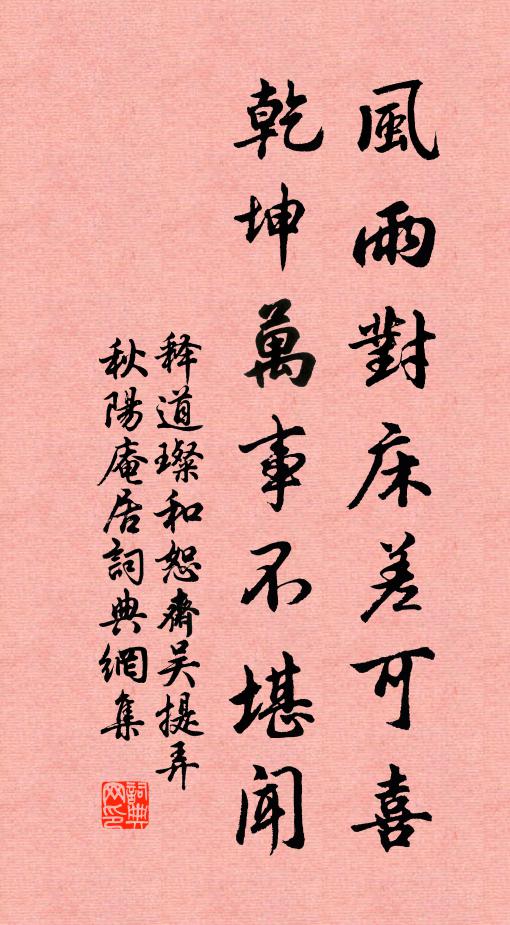 風雨對床差可喜
乾坤萬事不堪聞
释道璨和恕齋吴提弄
秋陽庵居詞典網集
詞典网印